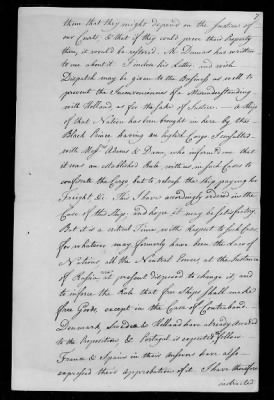 7
them that they might depend on the Justice of
our Courts, & that if they would prove their Property
then, it would be restored. Mr. Dumas has written
to me about it. I inclose his Letter, and wish
Dispatch may be given to the Business as well to
prevent the Inconveniences of a Misunderstanding
with Holland, as for the sake of Justice. A Ship
of that Nation has been brought in here by the
Black Prince having an English Cargo I consulted
with Messrs. Adams & Deane, who informed me that
it was an established Rule with us in such Cases to
confiscate the Cargo but to release the Ship paying her
Freight &c. This I have accordingly ordered in the
Case of this Ship, and hope it may be satisfactory.
But it is a critical Time with Respect to such Cases,
for whatever may formerly have been the Law of
Nations, all the Neutral Powers at the Instance
of Russia at present disposed to change it, and
to inforce the Rule that free Ships shall make
free Goods, except in the Case of Contraband.
Denmark, Sweden & Holland have already acceded
to the Proposition, & Portugal is expected to follow
France & Spain in their Answers have also
expressed their approbation of it. I have therefore
instructed